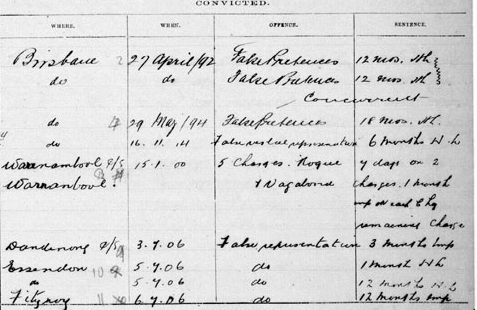 CONVICTED.
WHERE. WHEN. OFFENCE. SENTENCE.
Brisbane 2 27 April/92 False Pretences 12 mos. Hl
do do False Pretences 12 mos. Hl
Concurrent
do 29 May/94 False Pretences 18 mos. Hl.
do 16. 11. 14 False representation 6 months H.L
Warrnambool P/S 15.1.00 5 Charges. Rogue 7 days on 2
Warrnambool. + Vagabond charges. 1 month
imp on each
remaining Charge
Dandenong P/S 9 3.7.06 False representation 3 months imp
Essendon 10 5.7.06 do 1 month H L
do 5.7.06 do 12 months H.L
Fitzroy 11 6.7.06 do 12 months imp